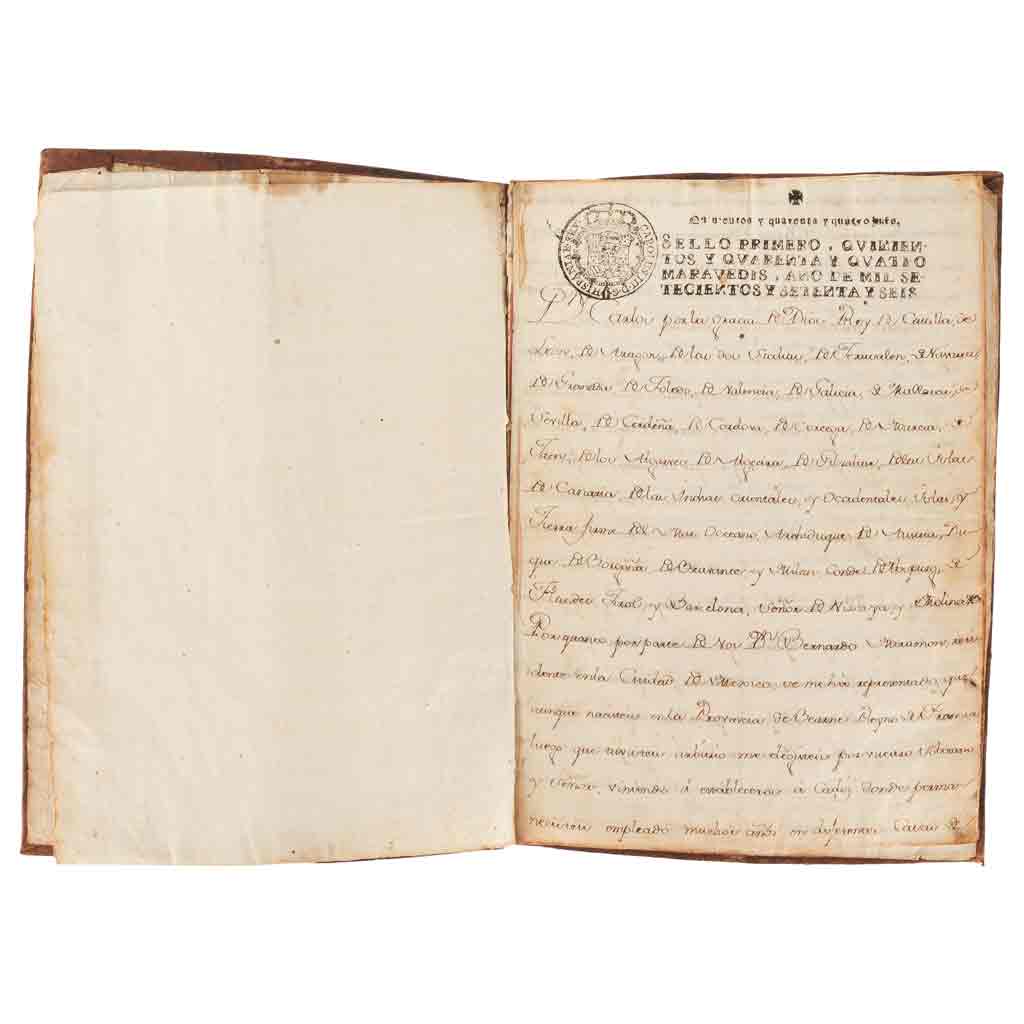 Quinientos y quarenta y quatro mrs.
SELLO PRIMERO, QVINIEN-
TOS Y QVARENTA Y QVATRO
MARAVEDIS, AÑO DE MIL SE-
TECIENTOS Y SETENTA Y SEIS
CAROLUS III D G HISPANIAR REX
Dn Carlos por la gracia de Dios Rey de Castilla, de
Leon, de Aragon, de las dos Sicilias, de Jerusalen, de Navarra
de Granada, de Toledo, de Valencia, de Galicia, de Mallorca, de
Sevilla, de Cerdeña, de Cordova, de Corcega, de Murcia, de
Jaen, de los Algarves de Algecira, de Gibraltar, de las Islas
de Canaria, de las Indias orientales, y Occidentales Islas, y
Tierra firme del Mar Occeano, Archiduque de Austria, Du-
que de Borgoña de Bravante y Milan Conde de Abspurg, de
Flandes Tirol, y Barcelona, Señor de Viscaya y Molina &a
Por quanto, por parte de Vos Dn Bernardo Maramon, resi-
dente en la Ciudad de Mexico, se me hizo representado, que
aunque nacisteis en la Provincia de Bearne Reyno de Francia
luego que tuvisteis arbitrio me elegisteis por vuestro Soberano
y Señor, viniendo á estableceros a Cadiz donde perma-
necisteis empleado muchos años en diferentes Casas de